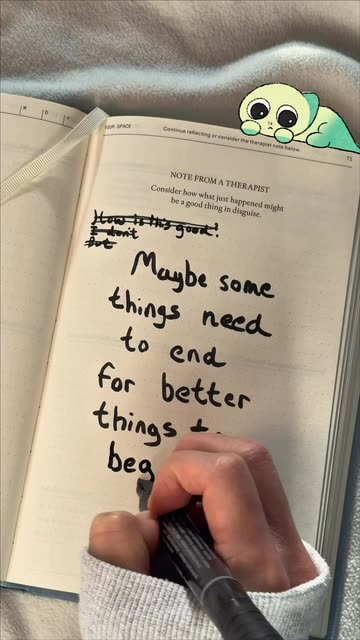 W D Y
YOUR SPACE
Continue reflecting or consider the therapist note below.
71
NOTE FROM A THERAPIST
Consider how what just happened might
be a good thing in disguise.
How is this good!
I don't
But
Maybe some
things need
to end
for better
things
beg